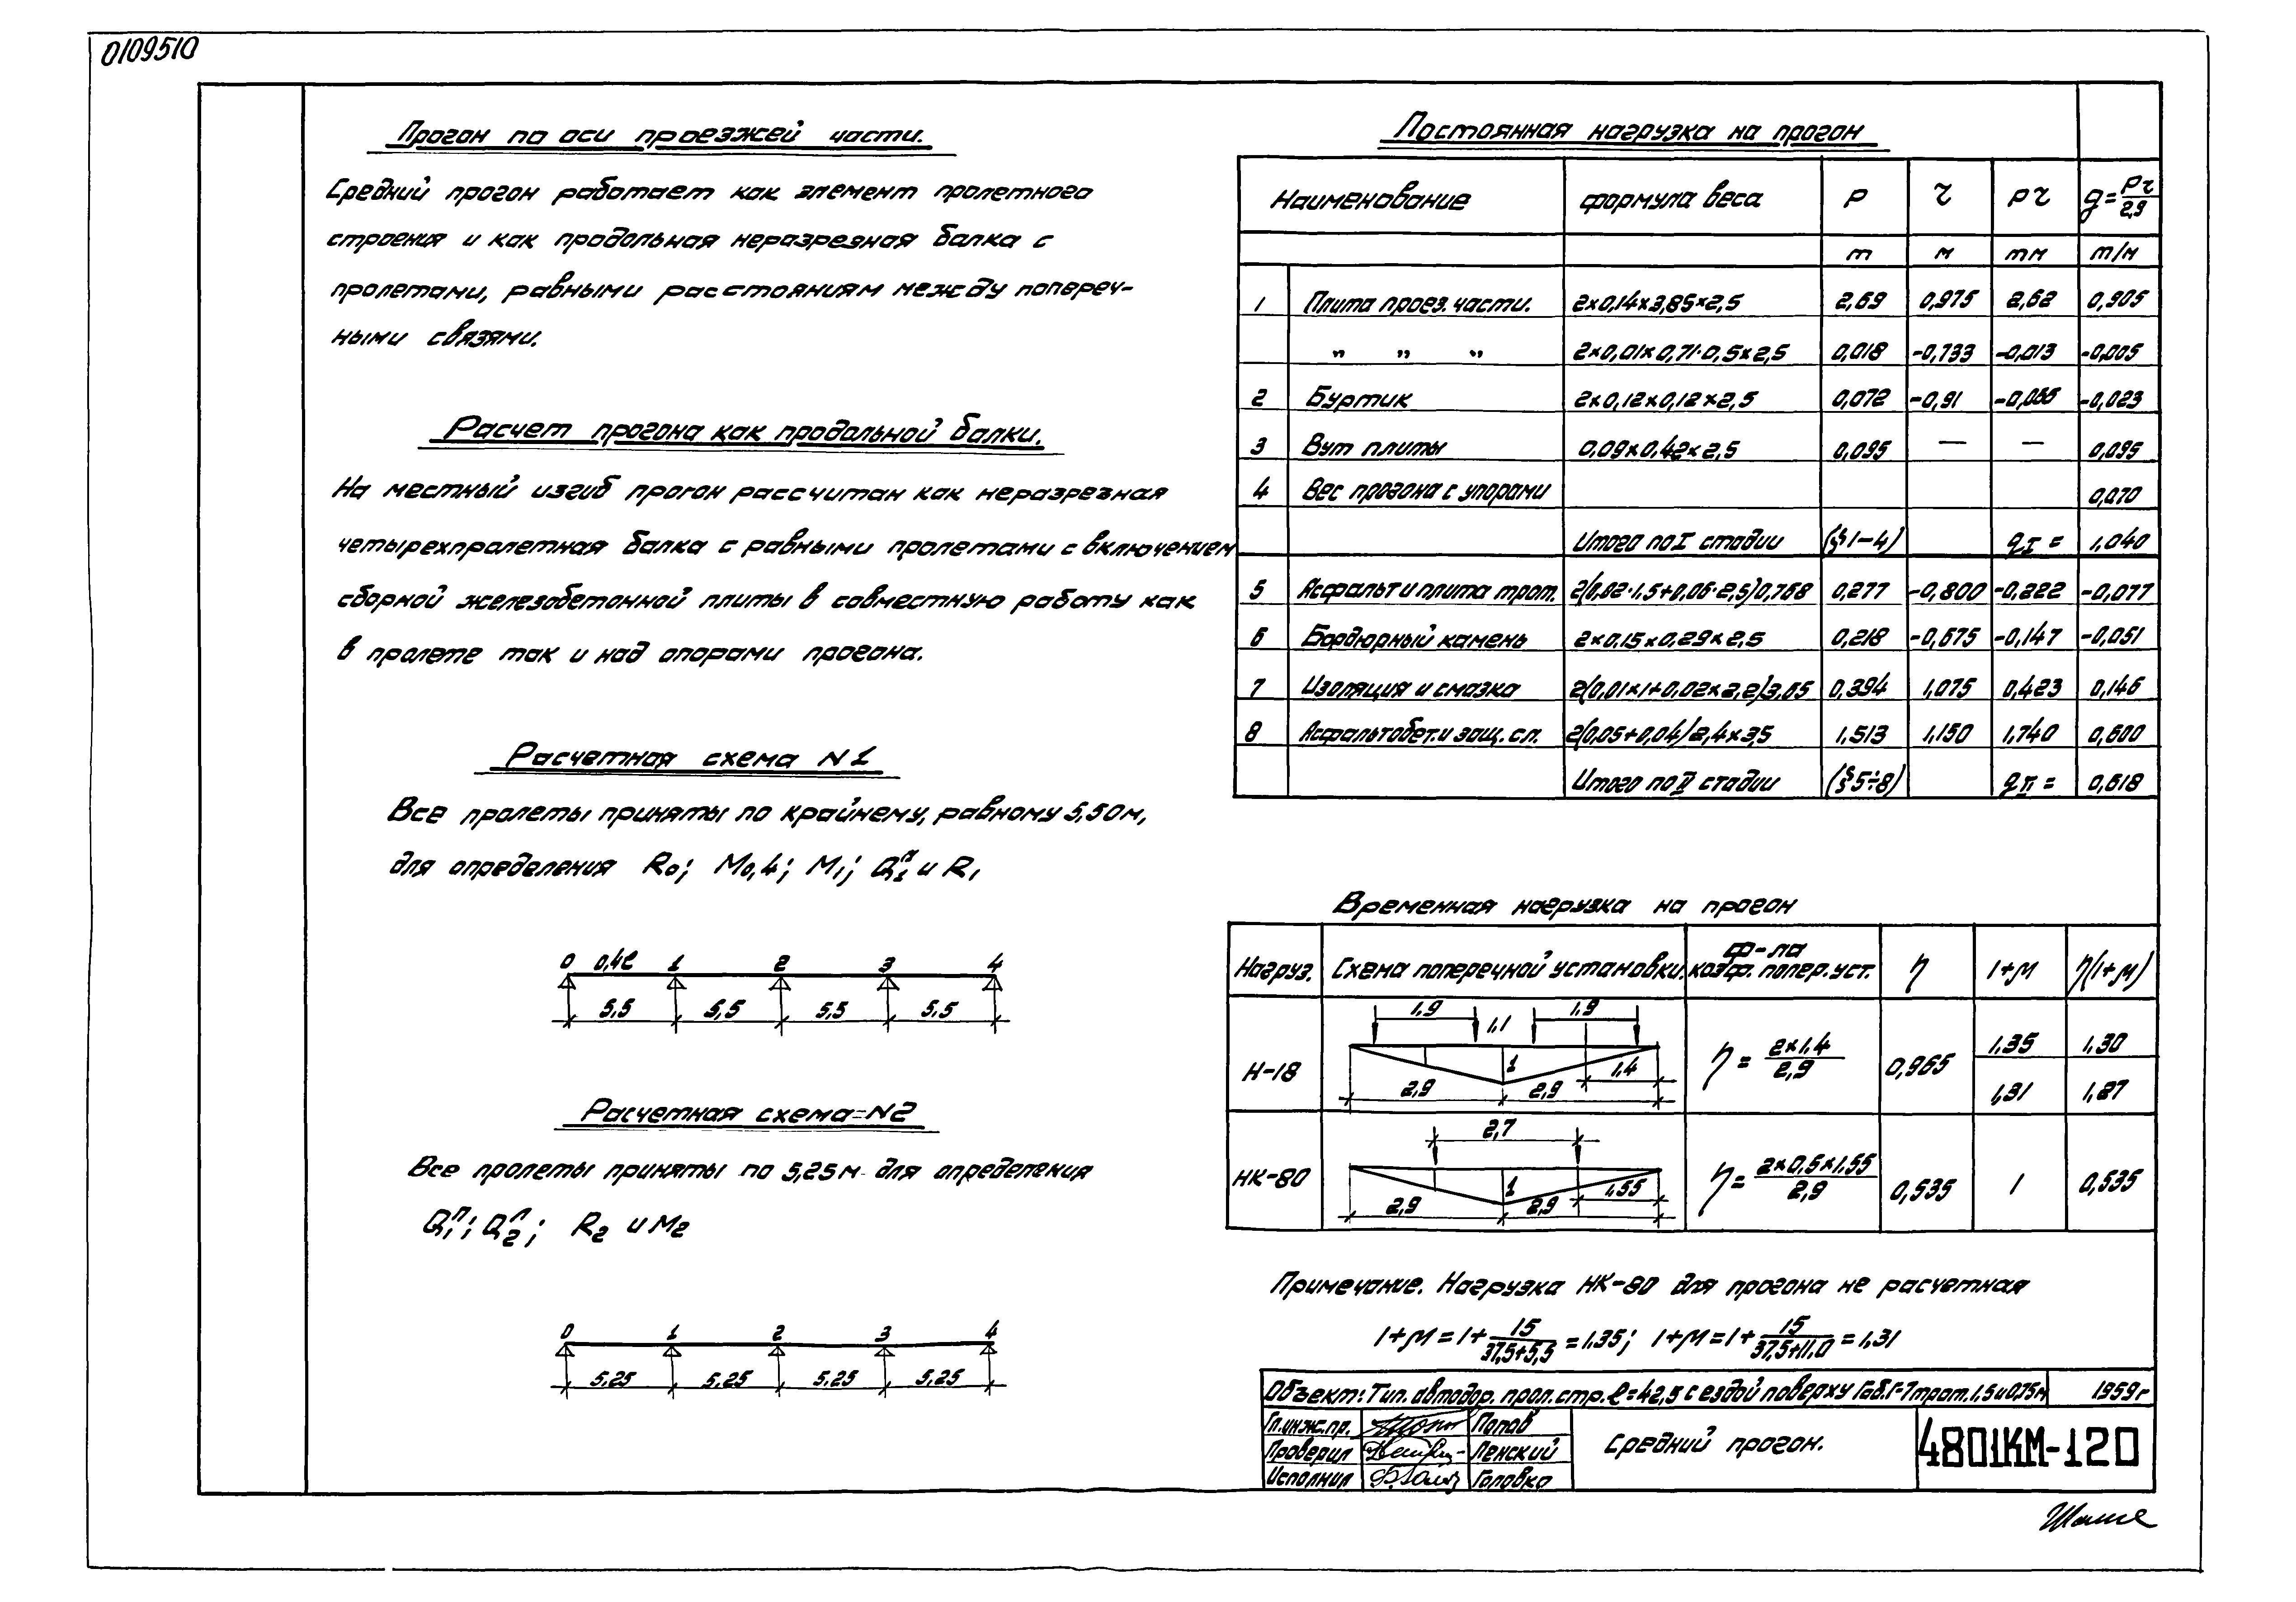 0109510
Прогон по оси проезжей части.
Средний прогон работает как элемент пролетного
строения и как продольная неразрезная балка с
пролетами, равными расстояниям между попереч-
ными связями.
Расчет прогона как продольной балки.
На местный изгиб прогон рассчитан как неразрезная
четырехпролетная балка с равными пролетами с включением
сборной железобетонной плиты в совместную работу как
в пролете так и над опорами прогона.
Расчетная схема N1
Все пролеты приняты по крайнему, равному 5,50м,
для определения R₀; M₀,₄; M₁; Q₁ᴫ и R₁
0 0,4ℓ 1 2 3 4
5,5 5,5 5,5 5,5
Расчетная схема N2
Все пролеты приняты по 5,25м для определения
Q₁ⁿ; Q₂ᴫ; R₂ и M₂
0 1 2 3 4
5,25 5,25 5,25 5,25
Постоянная нагрузка на прогон
Наименование формула веса P z Pz g=Pz/2,9
т м тм т/м
1 Плита проез. части. 2×0,14×3,85×2,5 2,69 0,975 2,62 0,905
" " " 2×0,01×0,71·0,5×2,5 0,018 -0,733 -0,013 -0,005
2 Буртик 2×0,12×0,12×2,5 0,072 -0,91 -0,065 -0,023
3 Вут плиты 0,09×0,42×2,5 0,095 — — 0,095
4 Вес прогона с упорами 0,070
Итого по I стадии (§1-4) qI = 1,040
5 Асфальт и плита трот. 2(0,02·1,5+0,06·2,5)0,768 0,277 -0,800 -0,222 -0,077
6 Бордюрный камень 2×0,15×0,29×2,5 0,218 -0,675 -0,147 -0,051
7 Изоляция и смазка 2(0,01×1+0,02×2,2)3,65 0,394 1,075 0,423 0,146
8 Асфальтобет. и защ. сл. 2(0,05+0,04)2,4×3,5 1,513 1,150 1,740 0,600
Итого по II стадии (§5÷8) qII = 0,618
Временная нагрузка на прогон
Нагруз. Схема поперечной установки. ф-ла коэф. попер. уст. η 1+м η(1+м)
Н-18 1,9 1,1 1,9 1 2,9 2,9 1,4 η = 2×1.4/2,9 0,965 1.35 1,30
1,31 1,27
НК-80 2,7 1 2,9 2,9 1,55 η = 2×0,5×1.55/2,9 0,535 1 0,535
Примечание. Нагрузка НК-80 для прогона не расчетная
1+м=1+15/37,5+5,5=1.35; 1+м=1+15/37,5+11,0=1,31
Объект: Тип. автодор. прол. стр. ℓ=42,5 с ездой поверху Габ. Г-7 трот. 1,5 и 0,75м 1959г
Гл.инж.пр. Попов
Проверил Ленский
Исполнил Головко
Средний прогон.
4801КМ-120